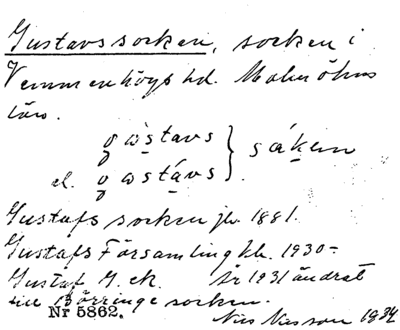 Gustavs socken, socken i
Vemmenhögs hd. Malmöhus
län.
gøstavs } såken
el. gøstavs
Gustafs socken jb 1881.
Gustafs Församling kb. 1930-
Gustaf G. ek. År 1931 ändrat
till Börringe socken.
Nr 5862.
Nils Nilsson 1934